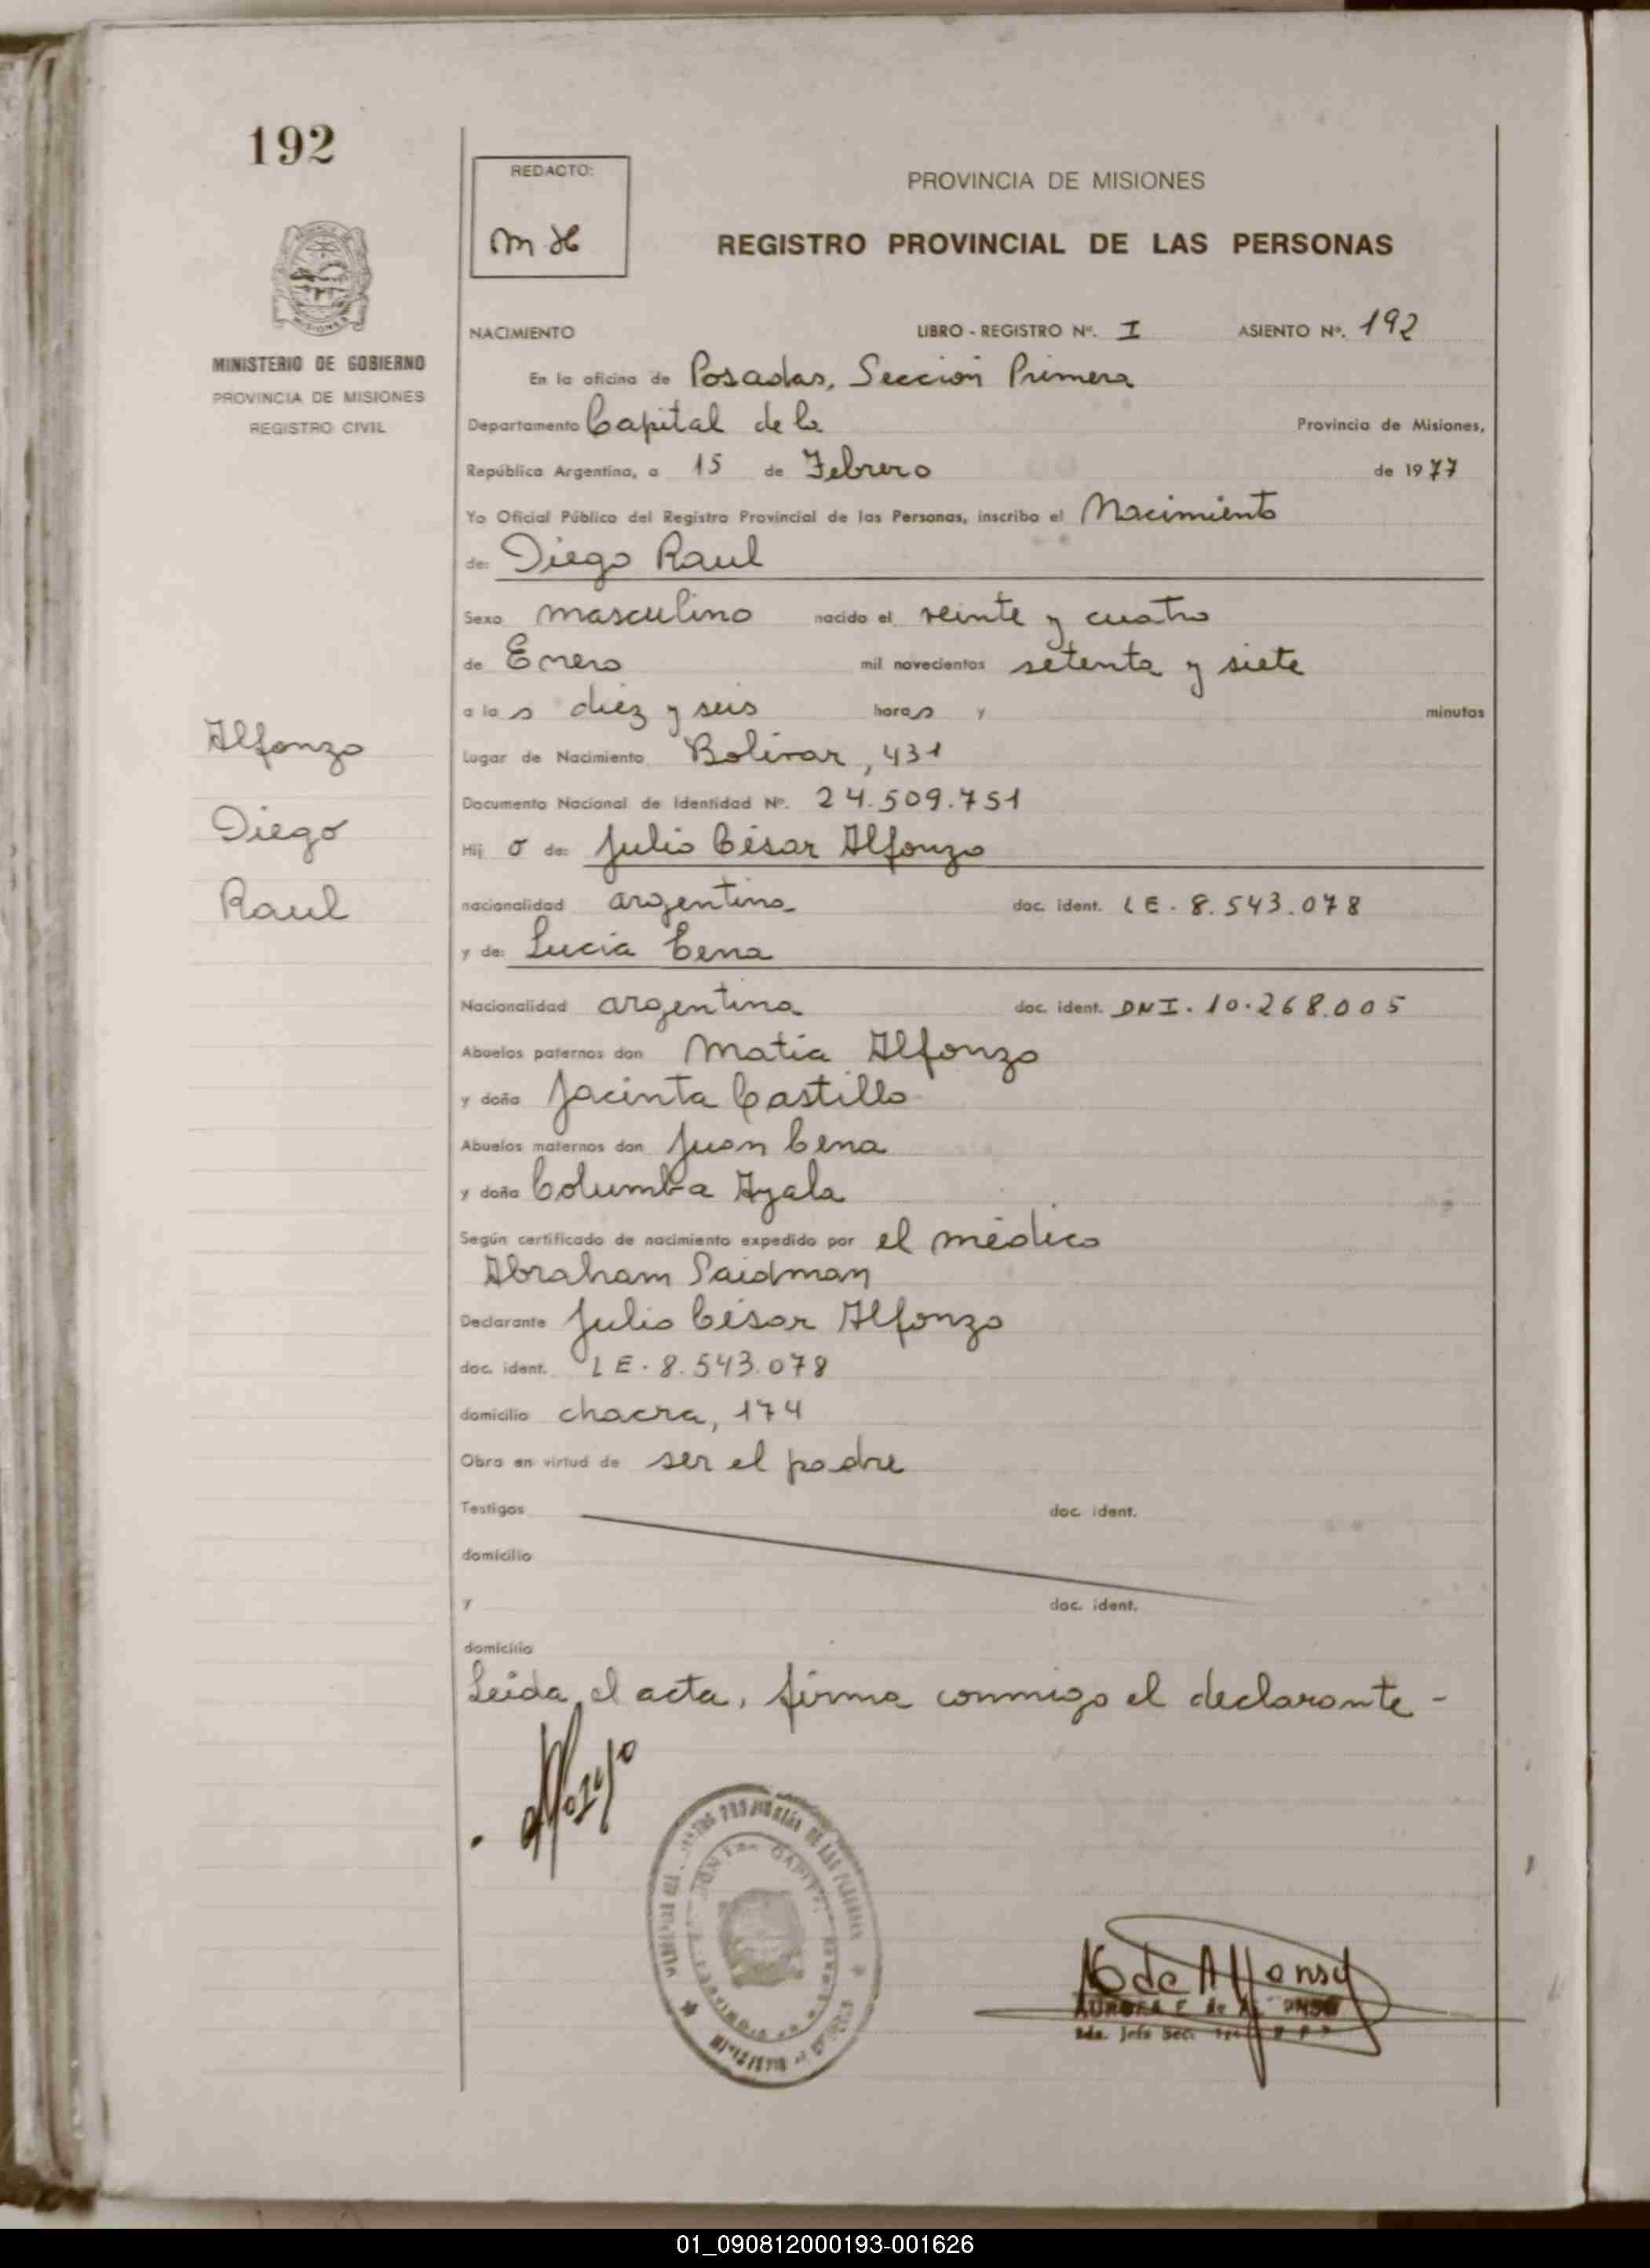 192
MISIONES
MINISTERIO DE GOBIERNO
PROVINCIA DE MISIONES
REGISTRO CIVIL
Alfonzo
Diego
Raul
REDACTO:
PROVINCIA DE MISIONES
REGISTRO PROVINCIAL DE LAS PERSONAS
NACIMIENTO LIBRO - REGISTRO Nº. I ASIENTO Nº. 192
En la oficina de Posadas, Sección Primera
Departamento Capital de la Provincia de Misiones,
República Argentina, a 15 de Febrero de 1977
Yo Oficial Público del Registro Provincial de las Personas, inscribo el Nacimiento
de: Diego Raul
Sexo masculino nacido el veinte y cuatro
de Enero mil novecientos setenta y siete
a la s diez y seis horas y minutos
Lugar de Nacimiento Bolívar, 431
Documento Nacional de Identidad Nº. 24.509.751
Hij o de: Julio César Alfonzo
nacionalidad argentina doc. ident. LE. 8.543.078
y de: Lucia Cena
Nacionalidad argentina doc. ident. DNI. 10.268.005
Abuelos paternos don Matia Alfonzo
y doña Jacinta Castillo
Abuelos maternos don Juan Cena
y doña Columba Ayala
Según certificado de nacimiento expedido por el médico
Abraham Saidman
Declarante Julio César Alfonzo
doc. ident. LE. 8.543.078
domicilio chacra, 174
Obra en virtud de ser el padre
Testigos doc. ident.
domicilio
y doc. ident.
domicilio
Leida el acta, firma conmigo el declarante -
01_090812000193-001626